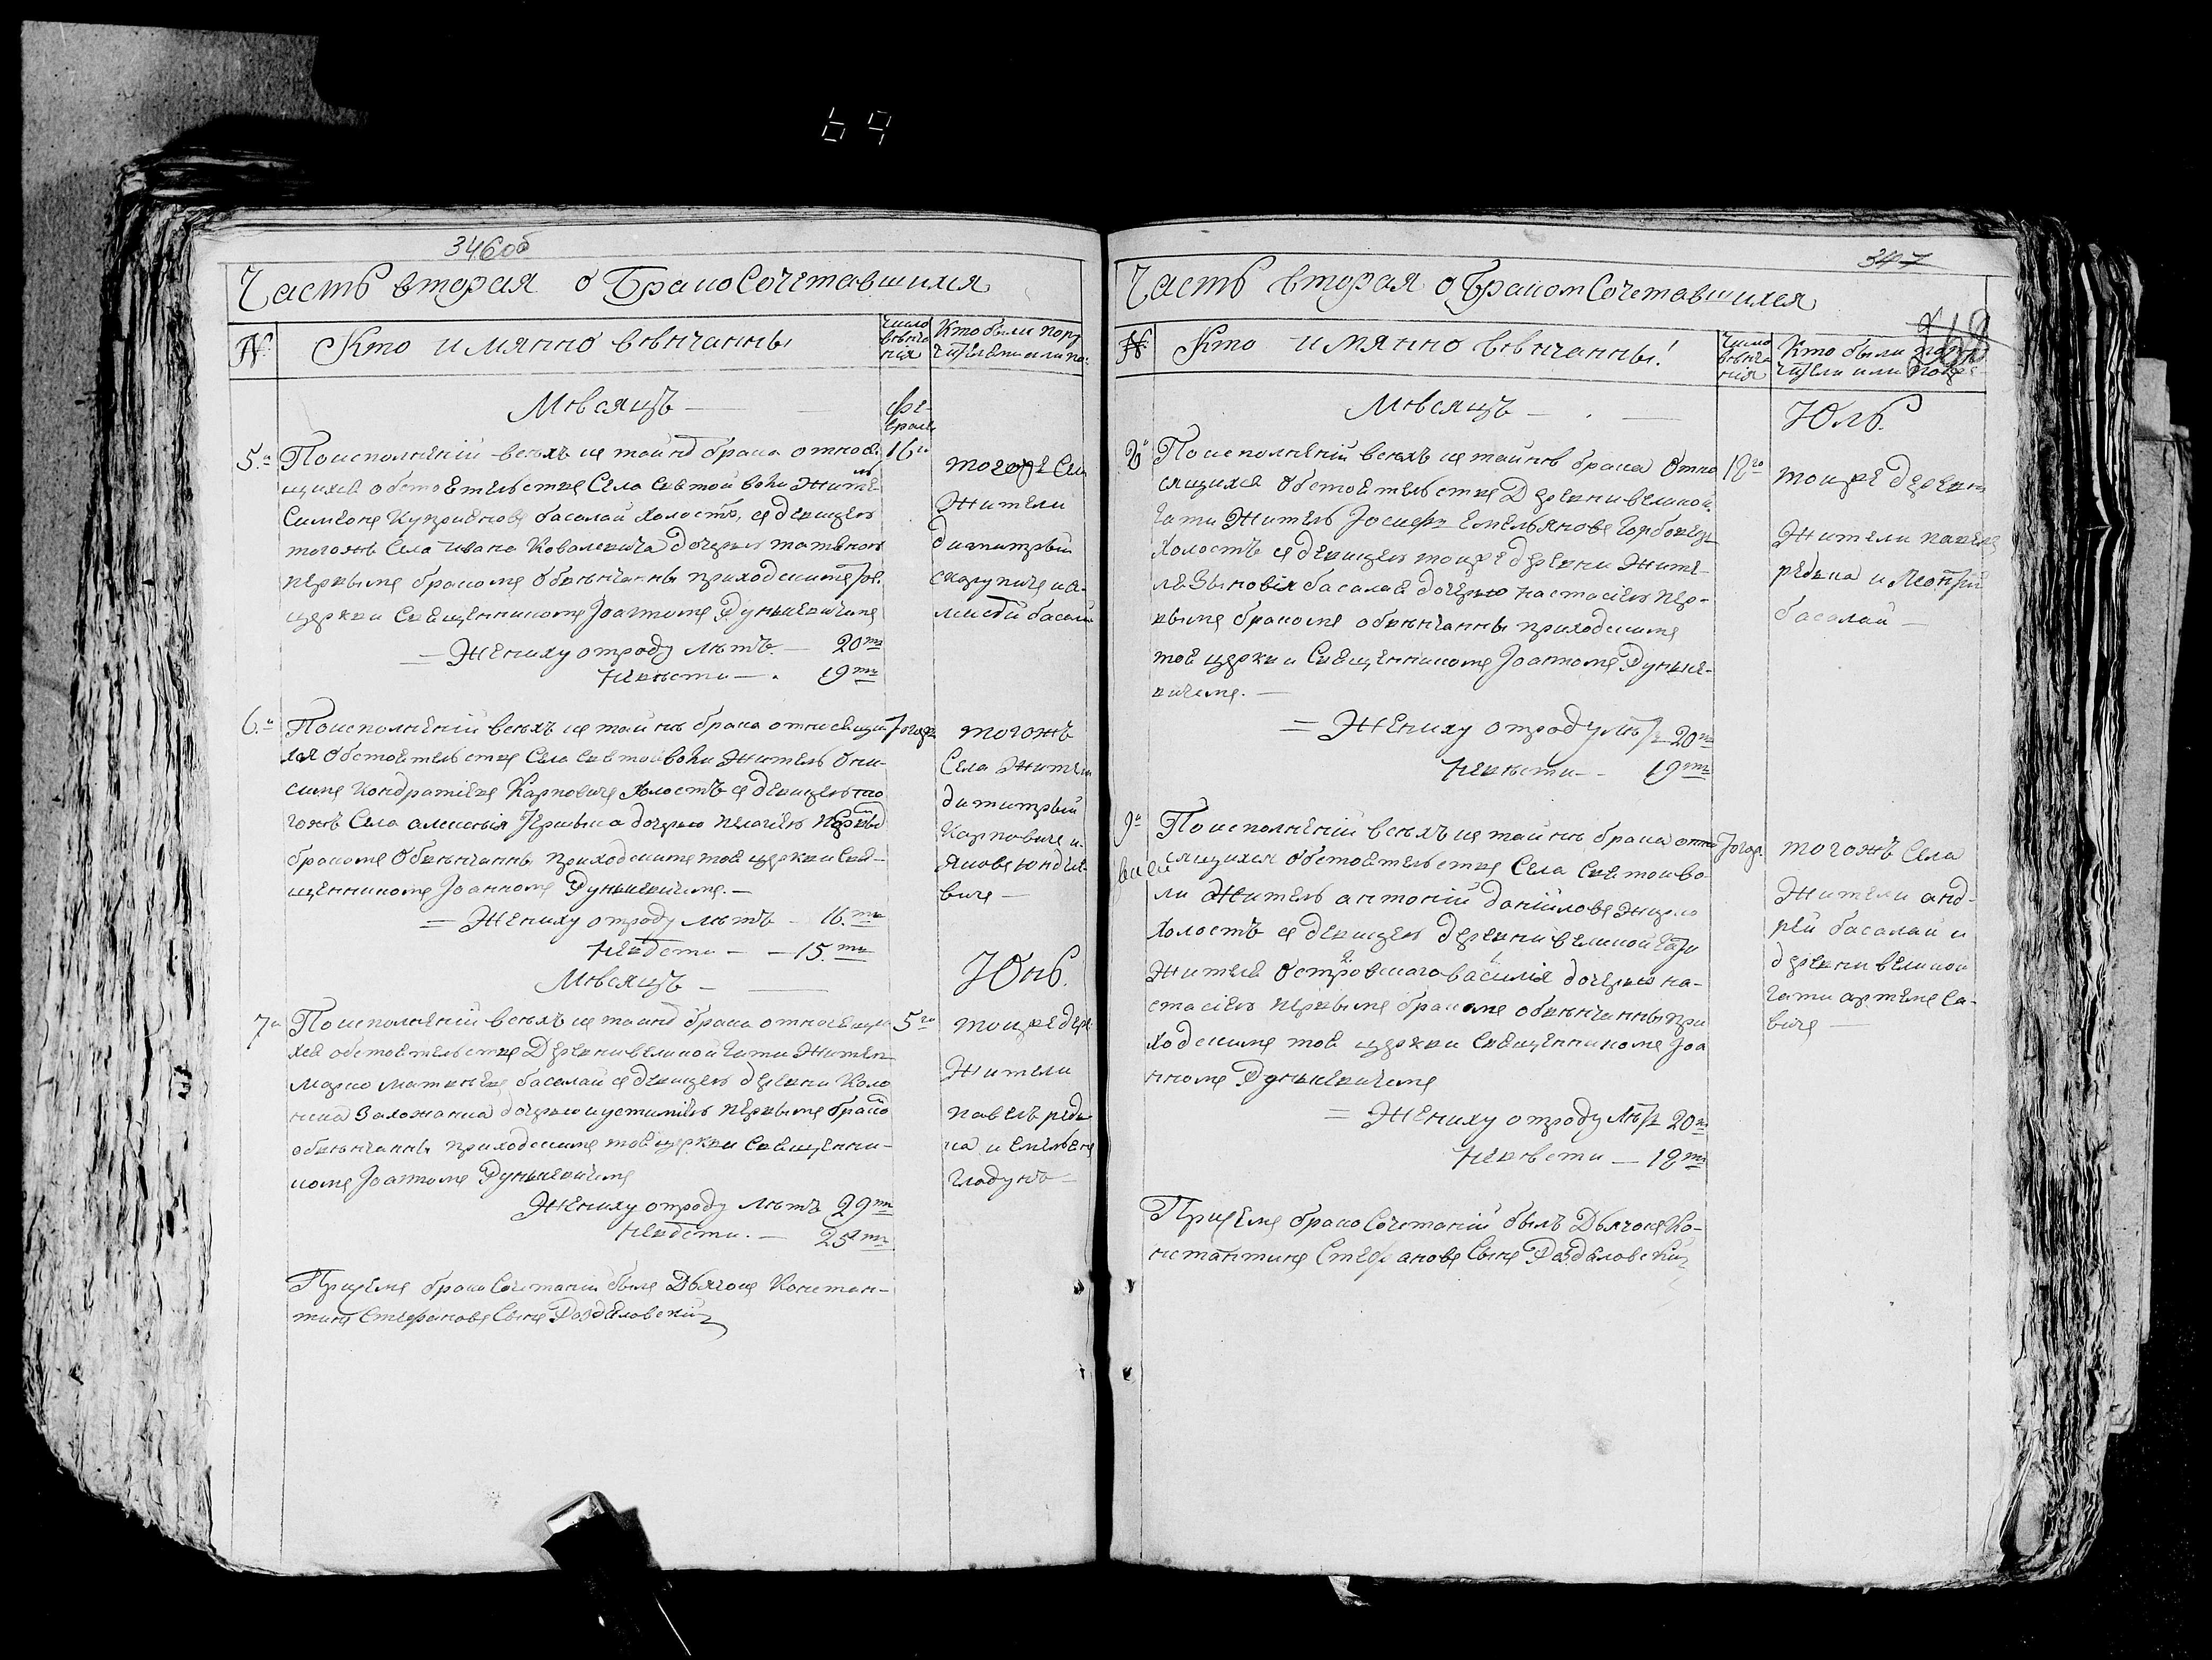 69
346об
Часть вторая о Брако Сочетавшихся
№ Кто имянно венчанны
Число венча нія
Кто были пору чители или по-
Месяцъ — Фе-враль
5.а По исполненій всехъ къ тайне брака относя- 16го
щихся обстоятельствъ Села Святой воли житель
Симеонъ Куприяновъ басалай холостъ, съ девицею
тогожъ Села Ивана Ковалевича дочерью татіяною
первымъ бракомъ обвенчанны приходскимъ тоя
церкви Священникомъ Іоанномъ Дунькевичемъ
— Жениху отроду летъ — 20тъ
Невести — 19тъ
тогоже Села
Жители
димитрый
скарупичъ и а-
лексей басалай
6.а По исполненій всехъ къ тайне брака относящи Тогож
хся обстоятельствъ Села Святой воли Житель Они-
симъ Кондратіевъ Карповичъ холостъ съ девицею то
гожъ Села алексія дочерью пелагіею первы
бракомъ Обвенчанны приходскимъ тоя церкви Свя-
щенникомъ Іоанномъ Дунькевичемъ. —
= Жениху отроду летъ — 16.тъ
Невести — 15.тъ
тогожъ
Села Жители
димитрый
Карповичъ и
Яковъ
вичъ —
Месяцъ — Юнь.
7а По исполненій всехъ къ тайне брака относящи 5го
хся обстоятельствъ Деревни великой Гати Житель
Марко Матвеевъ басалай съ девицею деревни Коло
дочерью иустиніею первымъ брако
обвенчанны приходскимъ тоя церкви Священни-
комъ Іоанномъ Дунькевичемъ
Жениху отроду летъ 29тъ
Невести. — 25тъ
тоиже дере
Жители
павелъ редь
ка и Емельянъ
гладунъ —
При семъ брако Сочетаніи былъ Дьячокъ Констан-
тинъ Стефановъ Сынъ Роздяловскій
347
348
Часть вторая о Бракомъ Сочетавшихся
№ Кто имянно венчанны!
Число венча нія
Кто были пору чители или поезж
Месяцъ — Юль.
8 По исполненій всехъ къ тайне брака Отно 12го
сящихся Обстоятельствъ Деревни великой
Гати Житель Іосифъ Емельяновъ Горбовецъ
Холостъ съ девицею тоиже деревни Жите-
ля Зыновія басалая дочерью настасіею пер-
вымъ бракомъ обвенчанны приходскимъ
тоя церкви Священникомъ Іоанномъ Дуньке-
вичемъ. —
= Жениху отроду летъ — 20тъ
Невести — 19тъ
тоиже деревни
Жители павелъ
редька и Леонтій
басалай —
9а По исполненій всехъ къ тайне брака отно Тогож.
сящихся обстоятельствъ Села Святой во-
ли Житель антоній даніиловъ
Холостъ съ девицею деревни великой Гати
Жителя Островского василія дочерью на-
стасіею первымъ бракомъ обвенчанны при
ходскимъ тоя церкви Священникомъ Іоа
нномъ Дунькевичемъ
= Жениху отроду летъ 20тъ
Невести — 18тъ
тогожъ Села
Жители анд-
рей басалай и
деревни великой
гати артемъ са-
вичъ —
При семъ брако Сочетаній былъ Дьячокъ Ко-
нстантинъ Стефановъ Сынъ Роздяловскій